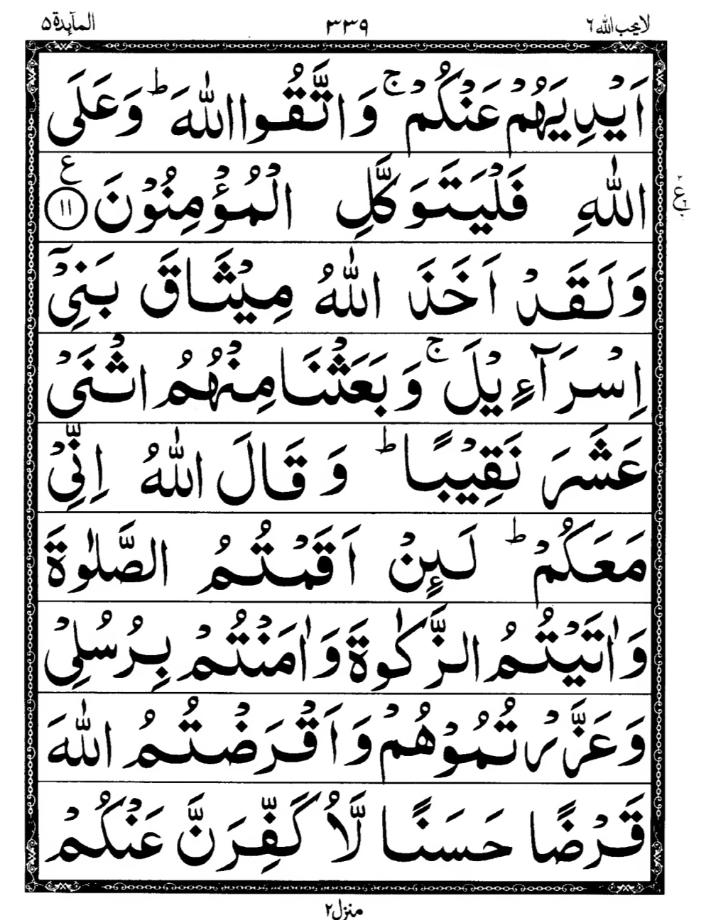 لا یحب اللہ ٦ ٣٣٩ المآىٕدة ٥
اَیْدِیَهُمْ عَنْكُمْ ۚ وَاتَّقُوا اللّٰهَ ؕ وَعَلَی
اللّٰهِ فَلْیَتَوَكَّلِ الْمُؤْمِنُوْنَ ۧ ﴿١١﴾ ع
وَلَقَدْ اَخَذَ اللّٰهُ مِیْثَاقَ بَنِیْۤ
اِسْرَآءِیْلَ ۚ وَبَعَثْنَا مِنْهُمُ اثْنَیْ
عَشَرَ نَقِیْبًا ؕ وَقَالَ اللّٰهُ اِنِّیْ
مَعَكُمْ ؕ لَىِٕنْ اَقَمْتُمُ الصَّلٰوةَ
وَاٰتَیْتُمُ الزَّكٰوةَ وَاٰمَنْتُمْ بِرُسُلِیْ
وَعَزَّرْتُمُوْهُمْ وَاَقْرَضْتُمُ اللّٰهَ
قَرْضًا حَسَنًا لَّاُكَفِّرَنَّ عَنْكُمْ
منزل ٢